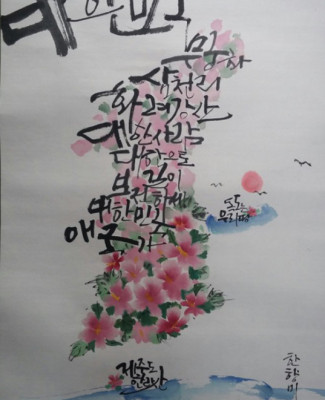 대한민국
무궁화
삼천리
화려강산
대한사람
대한으로
길이
보전하세
대한민국
애국가
독도는
우리땅
제주도
한라산
한향미